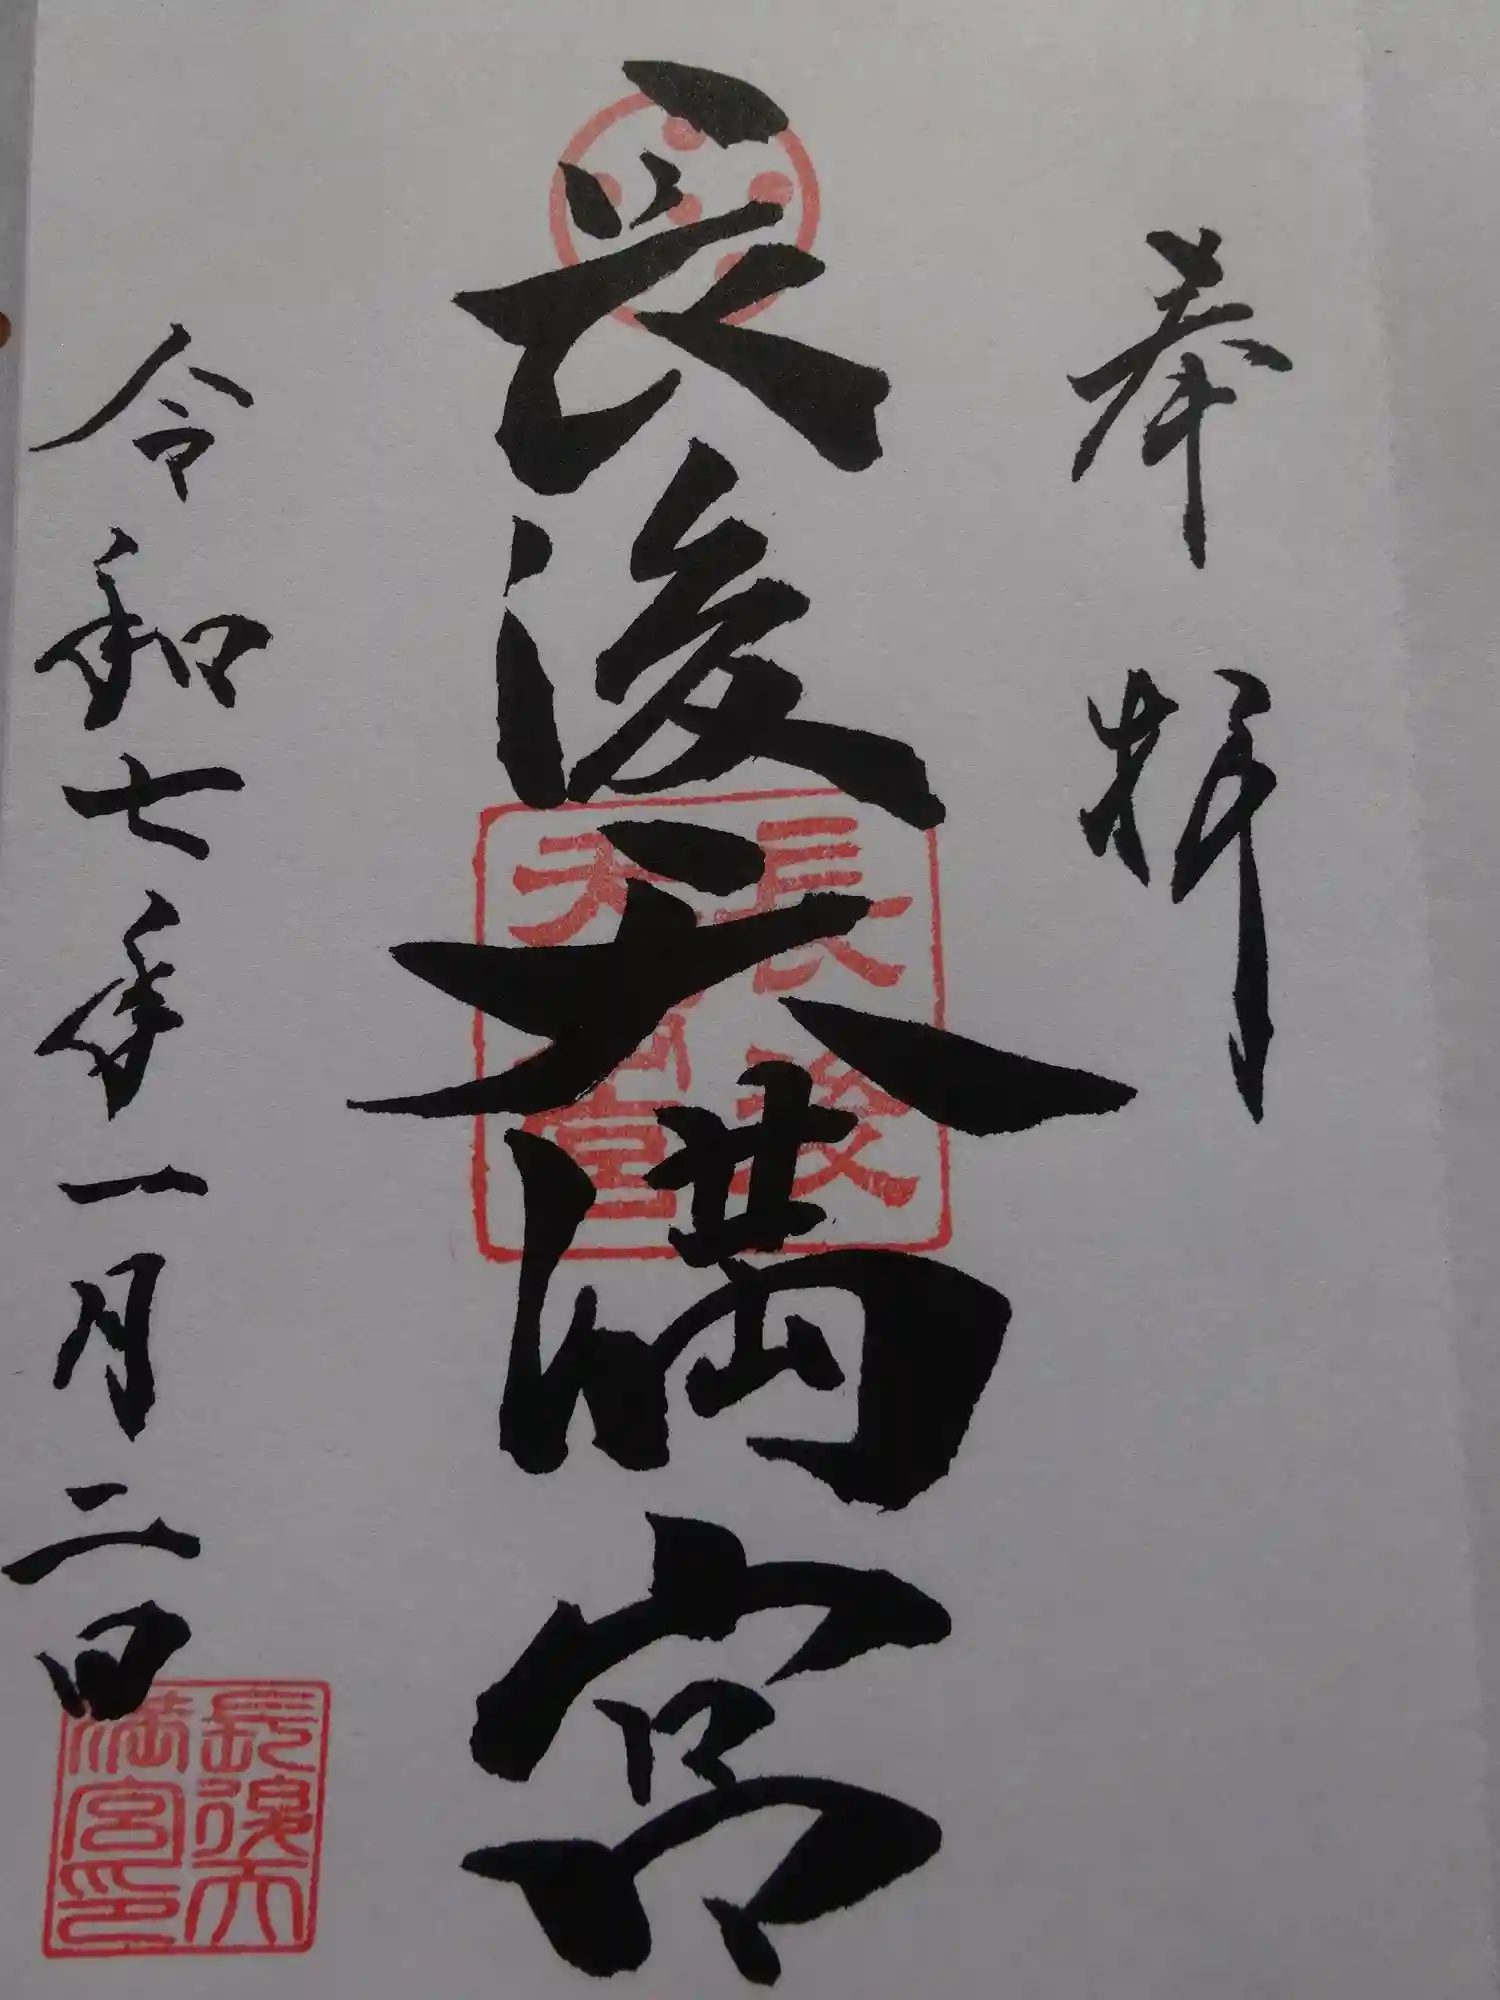 奉拝
長後天満宮
長後
天満宮
令和七年一月二日
長後天
満宮印